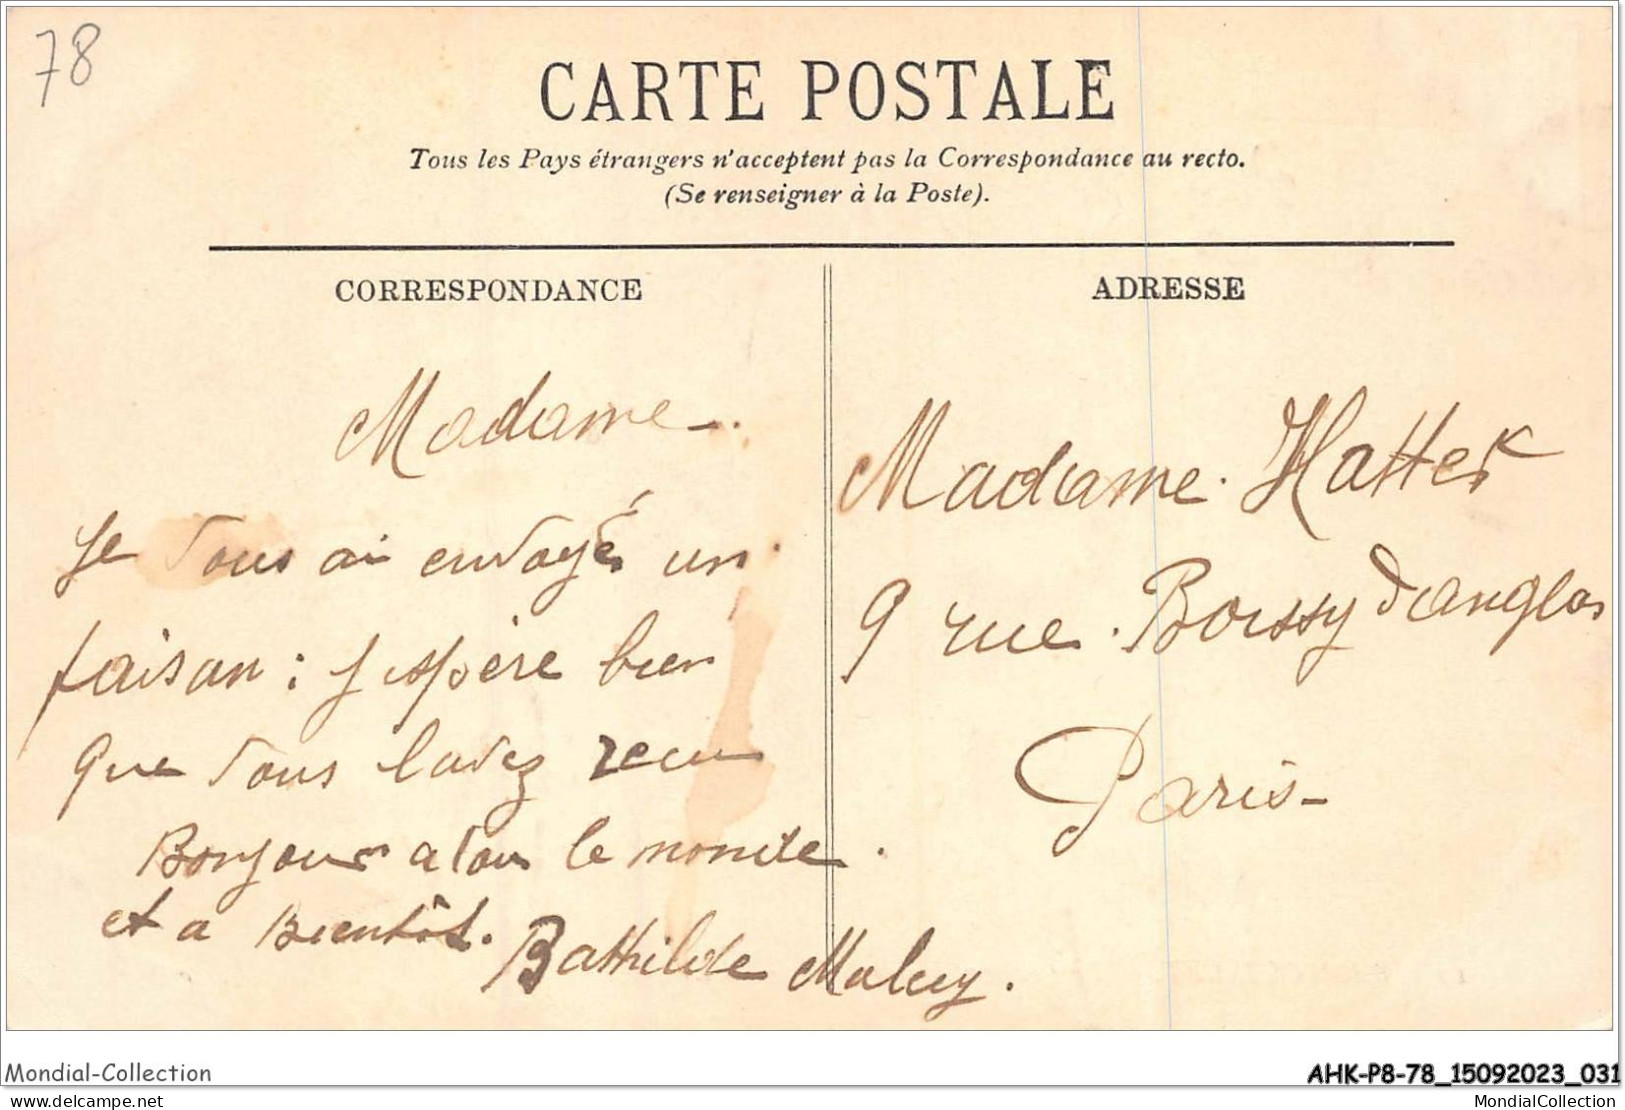 78
CARTE POSTALE
Tous les Pays étrangers n'acceptent pas la Correspondance au recto.
(Se renseigner à la Poste).
CORRESPONDANCE
Madame.
Je vous ai envoyé un
faisan : j espère bien
que vous lavez recu
Bonjour a tou le monde.
et a Bientôt. Bathilde
ADRESSE
Madame. Hatter
9 rue. Boissy d'anglas
Paris-
Mondial-Collection
AHK-P8-78_15092023_031
delcampe.net
MondialCollection